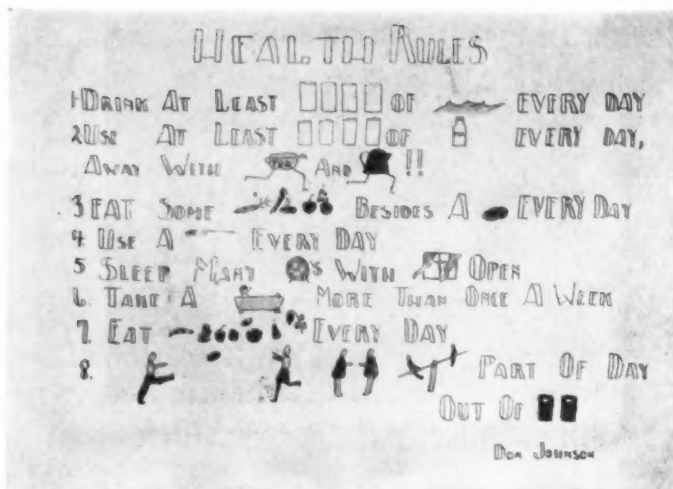 HEALTH RULES
1 DRINK AT LEAST OF EVERY DAY
2 USE AT LEAST OF EVERY DAY,
AWAY WITH AND !!
3 EAT SOME BESIDES A EVERY DAY
4 USE A EVERY DAY
5 SLEEP MANY 'S WITH OPEN
6. TAKE A MORE THAN ONCE A WEEK
7. EAT EVERY DAY
8. PART OF DAY
OUT OF
DON JOHNSON